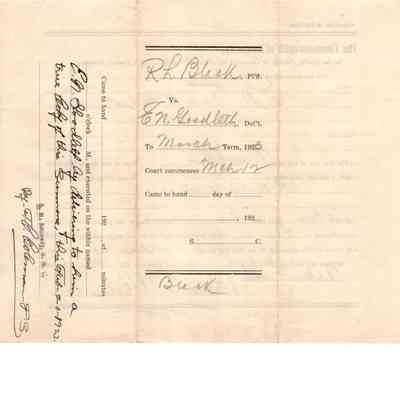 R L Black, Pltf.
Vs.
E N Goodloth Def't.
To March Term, 192
Court commences Mch 12
Came to hand day of
, 192
S. C.
Black
Came to hand 192 , at minutes
o'clock M., and executed on the within named
E. N. Goodloth by delivering to him a
true Copy of this Summons, this Feb 2-1923.
By